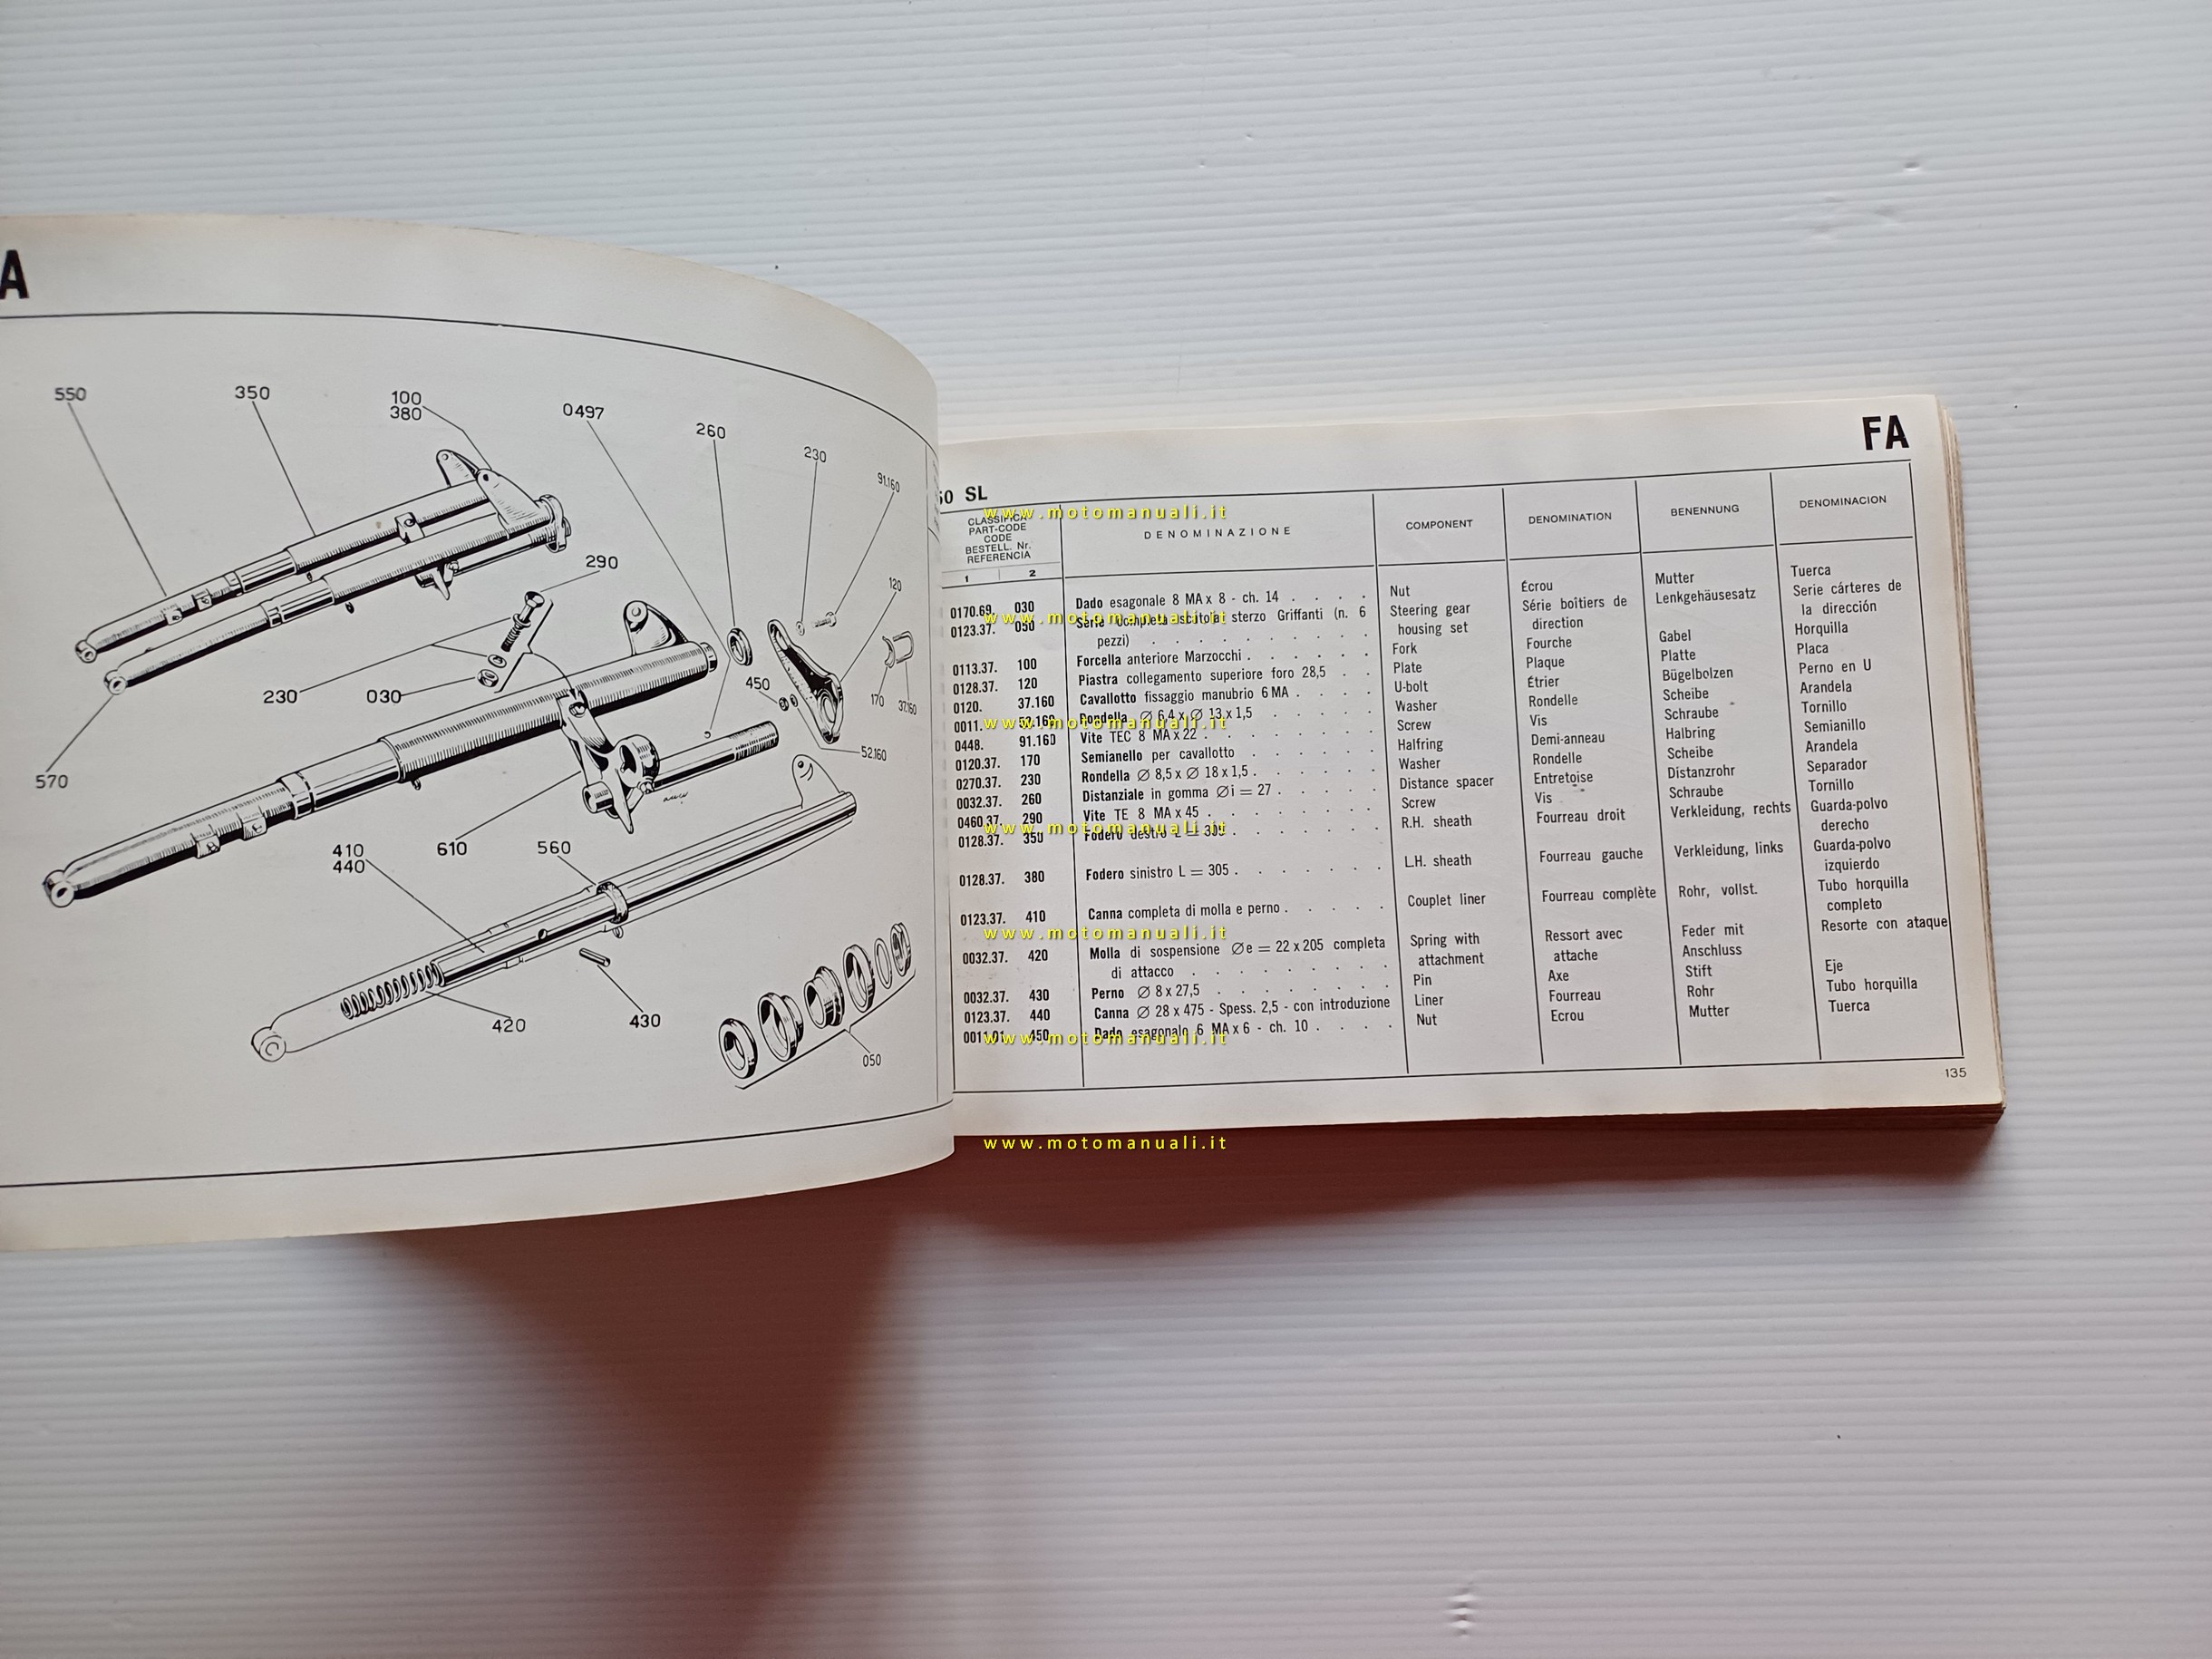 A
550
350
100
380
0497
260
230
91.160
290
120
230
030
450
170
37.160
52.160
570
410
440
610
560
420
430
050
FA
50 SL
CLASSIFICA
PART-CODE
CODE
BESTELL. Nr.
REFERENCIA
1 2
DENOMINAZIONE
COMPONENT
DENOMINATION
BENENNUNG
DENOMINACION
0170.69. 030 Dado esagonale 8 MA x 8 - ch. 14 . . . . Nut Écrou Mutter Tuerca
0123.37. 050 Serie completa scatola sterzo Griffanti (n. 6 Steering gear Série boîtiers de Lenkgehäusesatz Serie cárteres de
pezzi) . . . . . . . . . housing set direction la dirección
0113.37. 100 Forcella anteriore Marzocchi . . . . . . Fork Fourche Gabel Horquilla
0128.37. 120 Piastra collegamento superiore foro 28,5 . . Plate Plaque Platte Placa
0120. 37.160 Cavallotto fissaggio manubrio 6 MA . . . . U-bolt Étrier Bügelbolzen Perno en U
0011. 52.160 Rondella Ø 6,4 x Ø 13 x 1,5 . . . . . Washer Rondelle Scheibe Arandela
0448. 91.160 Vite TEC 8 MA x 22 . . . . . . . Screw Vis Schraube Tornillo
0120.37. 170 Semianello per cavallotto . . . . . . Halfring Demi-anneau Halbring Semianillo
0270.37. 230 Rondella Ø 8,5 x Ø 18 x 1,5 . . . . . Washer Rondelle Scheibe Arandela
0032.37. 260 Distanziale in gomma Ø i = 27 . . . . . Distance spacer Entretoise Distanzrohr Separador
0460.37. 290 Vite TE 8 MA x 45 . . . . . . . Screw Vis Schraube Tornillo
0128.37. 350 Fodero destro L = 305 . . . . . . R.H. sheath Fourreau droit Verkleidung, rechts Guarda-polvo
derecho
0128.37. 380 Fodero sinistro L = 305 . . . . . . . L.H. sheath Fourreau gauche Verkleidung, links Guarda-polvo
izquierdo
0123.37. 410 Canna completa di molla e perno . . . . . Couplet liner Fourreau complète Rohr, vollst. Tubo horquilla
completo
0032.37. 420 Molla di sospensione Ø e = 22 x 205 completa Spring with Ressort avec Feder mit Resorte con ataque
di attacco . . . . . . . . attachment attache Anschluss
0032.37. 430 Perno Ø 8 x 27,5 . . . . . . . Pin Axe Stift Eje
0123.37. 440 Canna Ø 28 x 475 - Spess. 2,5 - con introduzione Liner Fourreau Rohr Tubo horquilla
0011.01. 450 Dado esagonale 6 MA x 6 - ch. 10 . . . . Nut Ecrou Mutter Tuerca
135
www.motomanuali.it
www.motomanuali.it
www.motomanuali.it
www.motomanuali.it
www.motomanuali.it
www.motomanuali.it
www.motomanuali.it